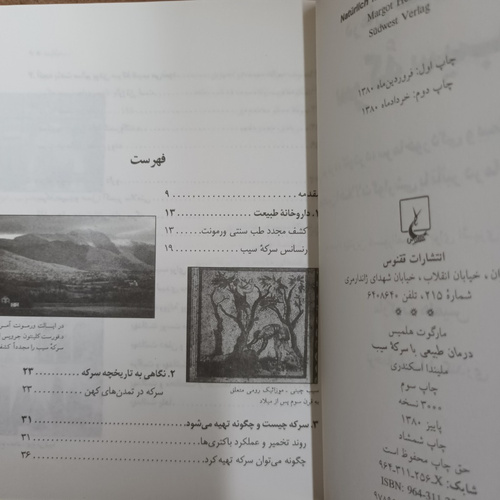 Natürlich
Margot He
Südwest Verlag
چاپ اول: فروردین‌ماه ۱۳۸۰
چاپ دوم: خردادماه ۱۳۸۰
انتشارات ققنوس
خیابان انقلاب، خیابان شهدای ژاندارمری
شمارهٔ ۲۱۵، تلفن ۶۴۰۸۶۴۰
* * *
مارگوت هلمیس
درمان طبیعی با سرکهٔ سیب
ملیندا اسکندری
چاپ سوم
۳۰۰۰ نسخه
پاییز ۱۳۸۰
چاپ شمشاد
حق چاپ محفوظ است
شابک: X-۲۵۶-۳۱۱-۹۶۴
ISBN: 964-311-
فهرست
مقدمه ۹
۱. داروخانهٔ طبیعت ۱۳
کشف مجدد طب سنتی ورمونت. ۱۳
رنسانس سرکهٔ سیب ۱۹
در ایالت ورمونت
دفورست کلینتون جرویس
سرکهٔ سیب را مجدداً کشف
سیب چینی. موزائیک رومی متعلق
به قرن سوم پس از میلاد
۲. نگاهی به تاریخچه سرکه ۲۳
سرکه در تمدن‌های کهن ۲۳
۳. سرکه چیست و چگونه تهیه می‌شود. ۳۱
روند تخمیر و عملکرد باکتری‌ها ۳۱
چگونه می‌توان سرکه تهیه کرد. ۳۶